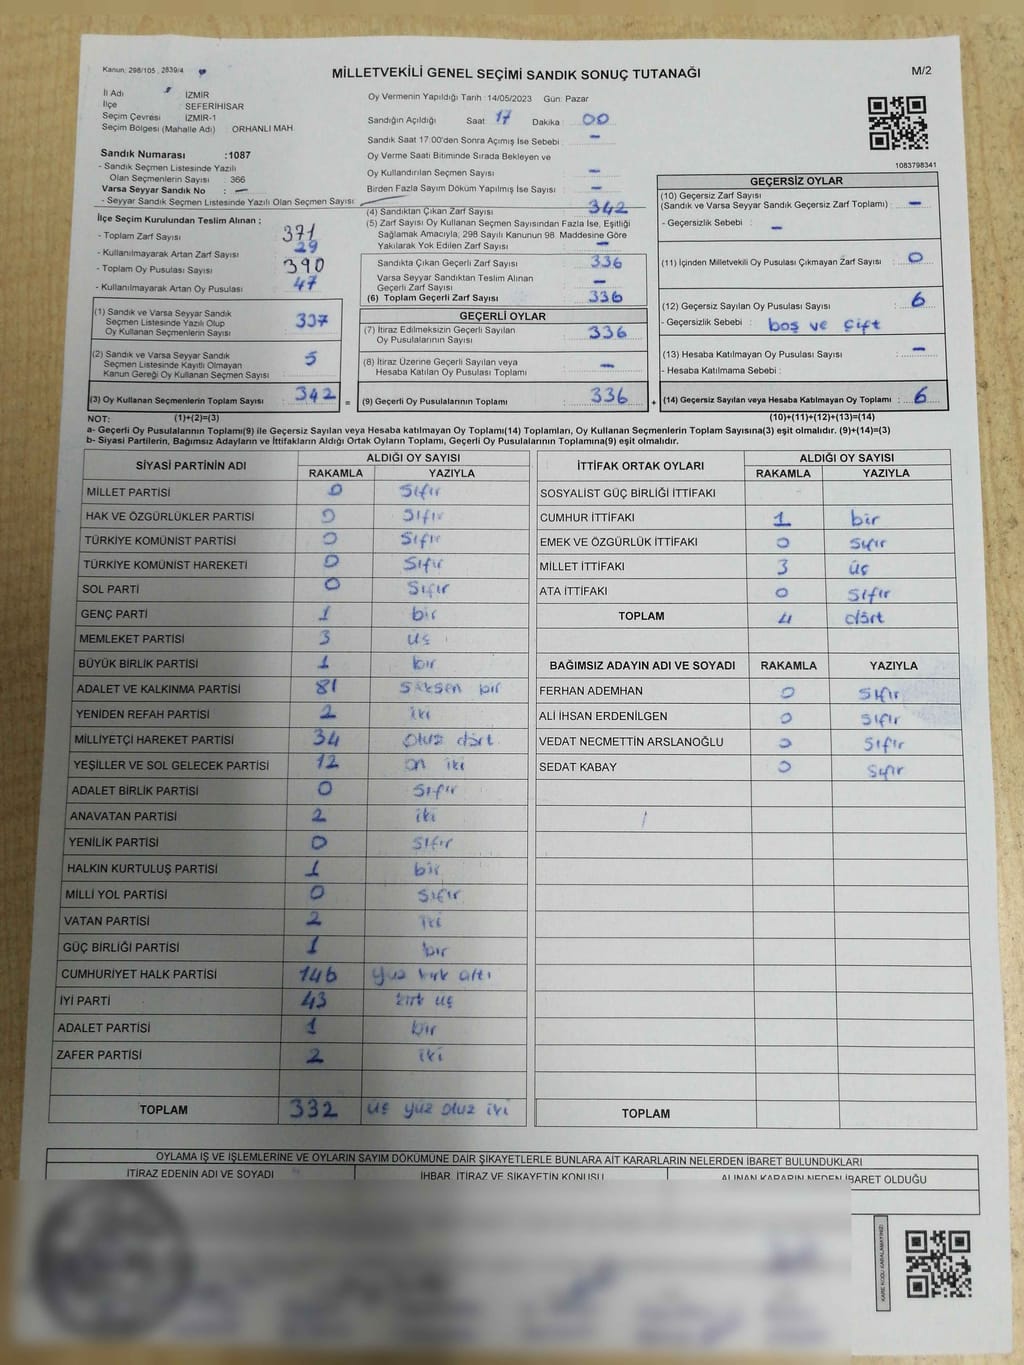 Kanun: 298/105 , 2839/4
MİLLETVEKİLİ GENEL SEÇİMİ SANDIK SONUÇ TUTANAĞI
M/2
İl Adı İZMİR
İlçe SEFERİHİSAR
Seçim Çevresi İZMİR-1
Seçim Bölgesi (Mahalle Adı) : ORHANLI MAH
Sandık Numarası :1087
- Sandık Seçmen Listesinde Yazılı
Olan Seçmenlerin Sayısı : 366
Varsa Seyyar Sandık No : —
- Seyyar Sandık Seçmen Listesinde Yazılı Olan Seçmen Sayısı
Oy Vermenin Yapıldığı Tarih :14/05/2023 Gün: Pazar
Sandığın Açıldığı Saat : 17 Dakika : 00
Sandık Saat 17:00'den Sonra Açımış İse Sebebi : —
Oy Verme Saati Bitiminde Sırada Bekleyen ve
Oy Kullandırılan Seçmen Sayısı : —
Birden Fazla Sayım Döküm Yapılmış İse Sayısı : —
1083798341
İlçe Seçim Kurulundan Teslim Alınan ;
- Toplam Zarf Sayısı : 371
- Kullanılmayarak Artan Zarf Sayısı : 29
- Toplam Oy Pusulası Sayısı : 390
- Kullanılmayarak Artan Oy Pusulası : 47
(1) Sandık ve Varsa Seyyar Sandık
Seçmen Listesinde Yazılı Olup
Oy Kullanan Seçmenlerin Sayısı : 337
(2) Sandık ve Varsa Seyyar Sandık
Seçmen Listesinde Kayıtlı Olmayan
Kanun Gereği Oy Kullanan Seçmen Sayısı : 5
(3) Oy Kullanan Seçmenlerin Toplam Sayısı : 342
(4) Sandıktan Çıkan Zarf Sayısı : 342
(5) Zarf Sayısı Oy Kullanan Seçmen Sayısından Fazla İse, Eşitliği
Sağlamak Amacıyla; 298 Sayılı Kanunun 98. Maddesine Göre
Yakılarak Yok Edilen Zarf Sayısı : —
Sandıkta Çıkan Geçerli Zarf Sayısı : 336
Varsa Seyyar Sandıktan Teslim Alınan
Geçerli Zarf Sayısı : —
(6) Toplam Geçerli Zarf Sayısı : 336
GEÇERLİ OYLAR
(7) İtiraz Edilmeksizin Geçerli Sayılan
Oy Pusulalarının Sayısı : 336
(8) İtiraz Üzerine Geçerli Sayılan veya
Hesaba Katılan Oy Pusulası Toplamı : —
= (9) Geçerli Oy Pusulalarının Toplamı : 336
GEÇERSİZ OYLAR
(10) Geçersiz Zarf Sayısı
(Sandık ve Varsa Seyyar Sandık Geçersiz Zarf Toplamı) : —
- Geçersizlik Sebebi : —
(11) İçinden Milletvekili Oy Pusulası Çıkmayan Zarf Sayısı : 0
(12) Geçersiz Sayılan Oy Pusulası Sayısı : 6
- Geçersizlik Sebebi : boş ve çift
(13) Hesaba Katılmayan Oy Pusulası Sayısı : —
- Hesaba Katılmama Sebebi :
+ (14) Geçersiz Sayılan veya Hesaba Katılmayan Oy Toplamı : 6
NOT: (1)+(2)=(3) (10)+(11)+(12)+(13)=(14)
a- Geçerli Oy Pusulalarının Toplamı(9) ile Geçersiz Sayılan veya Hesaba katılmayan Oy Toplamı(14) Toplamları, Oy Kullanan Seçmenlerin Toplam Sayısına(3) eşit olmalıdır. (9)+(14)=(3)
b- Siyasi Partilerin, Bağımsız Adayların ve İttifakların Aldığı Ortak Oyların Toplamı, Geçerli Oy Pusulalarının Toplamına(9) eşit olmalıdır.
SİYASİ PARTİNİN ADI ALDIĞI OY SAYISI
RAKAMLA YAZIYLA
MİLLET PARTİSİ 0 Sıfır
HAK VE ÖZGÜRLÜKLER PARTİSİ 0 Sıfır
TÜRKİYE KOMÜNİST PARTİSİ 0 Sıfır
TÜRKİYE KOMÜNİST HAREKETİ 0 Sıfır
SOL PARTİ 0 Sıfır
GENÇ PARTİ 1 bir
MEMLEKET PARTİSİ 3 üç
BÜYÜK BİRLİK PARTİSİ 1 bir
ADALET VE KALKINMA PARTİSİ 81 Seksen bir
YENİDEN REFAH PARTİSİ 2 iki
MİLLİYETÇİ HAREKET PARTİSİ 34 Otuz dört
YEŞİLLER VE SOL GELECEK PARTİSİ 12 on iki
ADALET BİRLİK PARTİSİ 0 Sıfır
ANAVATAN PARTİSİ 2 iki
YENİLİK PARTİSİ 0 Sıfır
HALKIN KURTULUŞ PARTİSİ 1 bir
MİLLİ YOL PARTİSİ 0 Sıfır
VATAN PARTİSİ 2 iki
GÜÇ BİRLİĞİ PARTİSİ 1 bir
CUMHURİYET HALK PARTİSİ 146 yüz kırk altı
İYİ PARTİ 43 kırk üç
ADALET PARTİSİ 1 bir
ZAFER PARTİSİ 2 iki
TOPLAM 332 üç yüz otuz iki
İTTİFAK ORTAK OYLARI ALDIĞI OY SAYISI
RAKAMLA YAZIYLA
SOSYALİST GÜÇ BİRLİĞİ İTTİFAKI
CUMHUR İTTİFAKI 1 bir
EMEK VE ÖZGÜRLÜK İTTİFAKI 0 Sıfır
MİLLET İTTİFAKI 3 üç
ATA İTTİFAKI 0 Sıfır
TOPLAM 4 dört
BAĞIMSIZ ADAYIN ADI VE SOYADI RAKAMLA YAZIYLA
FERHAN ADEMHAN 0 Sıfır
ALİ İHSAN ERDENİLGEN 0 Sıfır
VEDAT NECMETTİN ARSLANOĞLU 0 Sıfır
SEDAT KABAY 0 Sıfır
TOPLAM
OYLAMA İŞ VE İŞLEMLERİNE VE OYLARIN SAYIM DÖKÜMÜNE DAİR ŞİKAYETLERLE BUNLARA AİT KARARLARIN NELERDEN İBARET BULUNDUKLARI
İTİRAZ EDENİN ADI VE SOYADI İHBAR, İTİRAZ VE ŞİKAYETİN KONUSU ALINAN KARARIN NEDEN İBARET OLDUĞU
KARE KODU KARALAMAYINIZ!